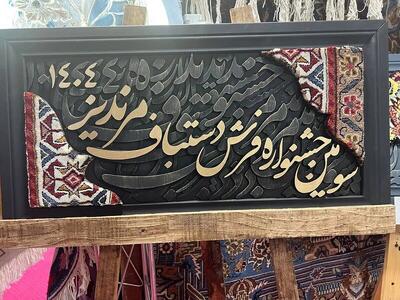 سومین جشنواره فرش دستباف مرندیز
۱۴۰۴